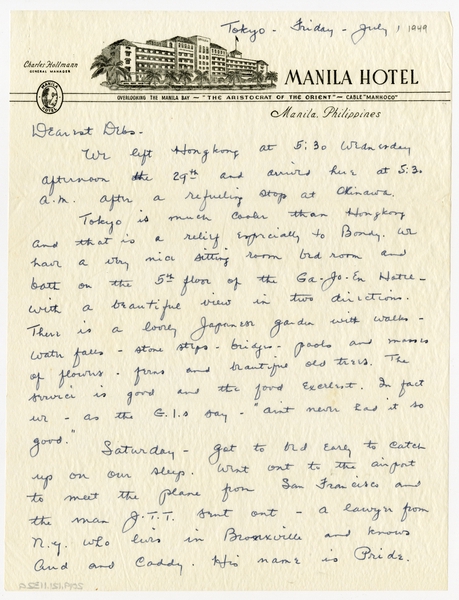 Tokyo - Friday - July 1 1949
Charles Hollmann
GENERAL MANAGER
MANILA HOTEL
MANILA HOTEL
OVERLOOKING THE MANILA BAY — "THE ARISTOCRAT OF THE ORIENT" — CABLE "MANHOCO"
Manila, Philippines
Dearest Debs -
We left Hongkong at 5:30 Wednesday
afternoon the 29th and arrived here at 5:30
a.m. after a refueling stop at Okinawa.
Tokyo is much cooler than Hongkong
and that is a relief especially to Bondy. We
have a very nice sitting room bed room and
bath on the 5th floor of the Ga-Jo-En Hotel -
with a beautiful view in two directions.
There is a lovely Japanese garden with walks -
water falls - stone steps - bridges - pools and masses
of flowers - ferns and beautiful old trees. The
service is good and the food excellent. In fact
we - as the G.I.s say - "aint never had it so
good."
Saturday - got to bed early to catch
up on our sleep. Went out to the airport
to meet the plane from San Francisco and
the man J.T.T. sent out - a lawyer from
N.Y. who lives in Bronxville and knows
Aud and Caddy. His name is Pride.